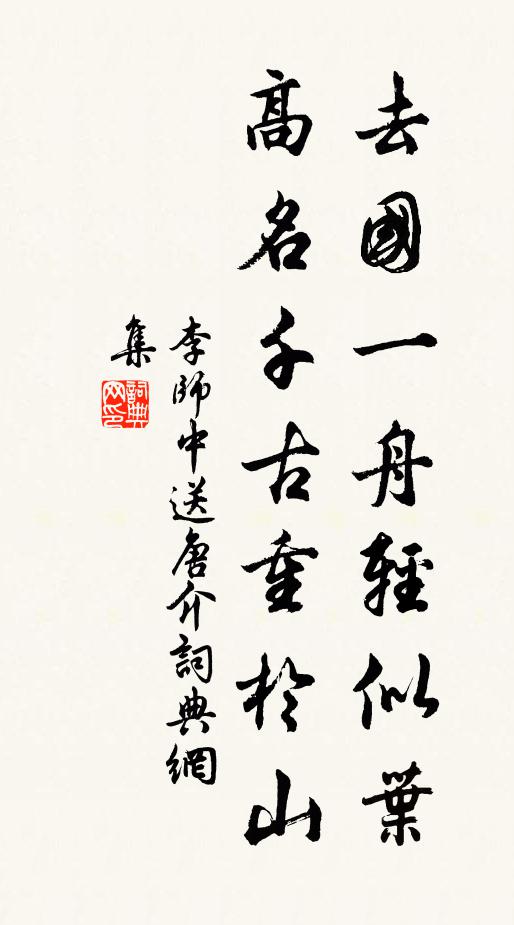 去國一舟輕似葉
高名千古重於山
李師中送唐介詞典網
集
詞典
网印